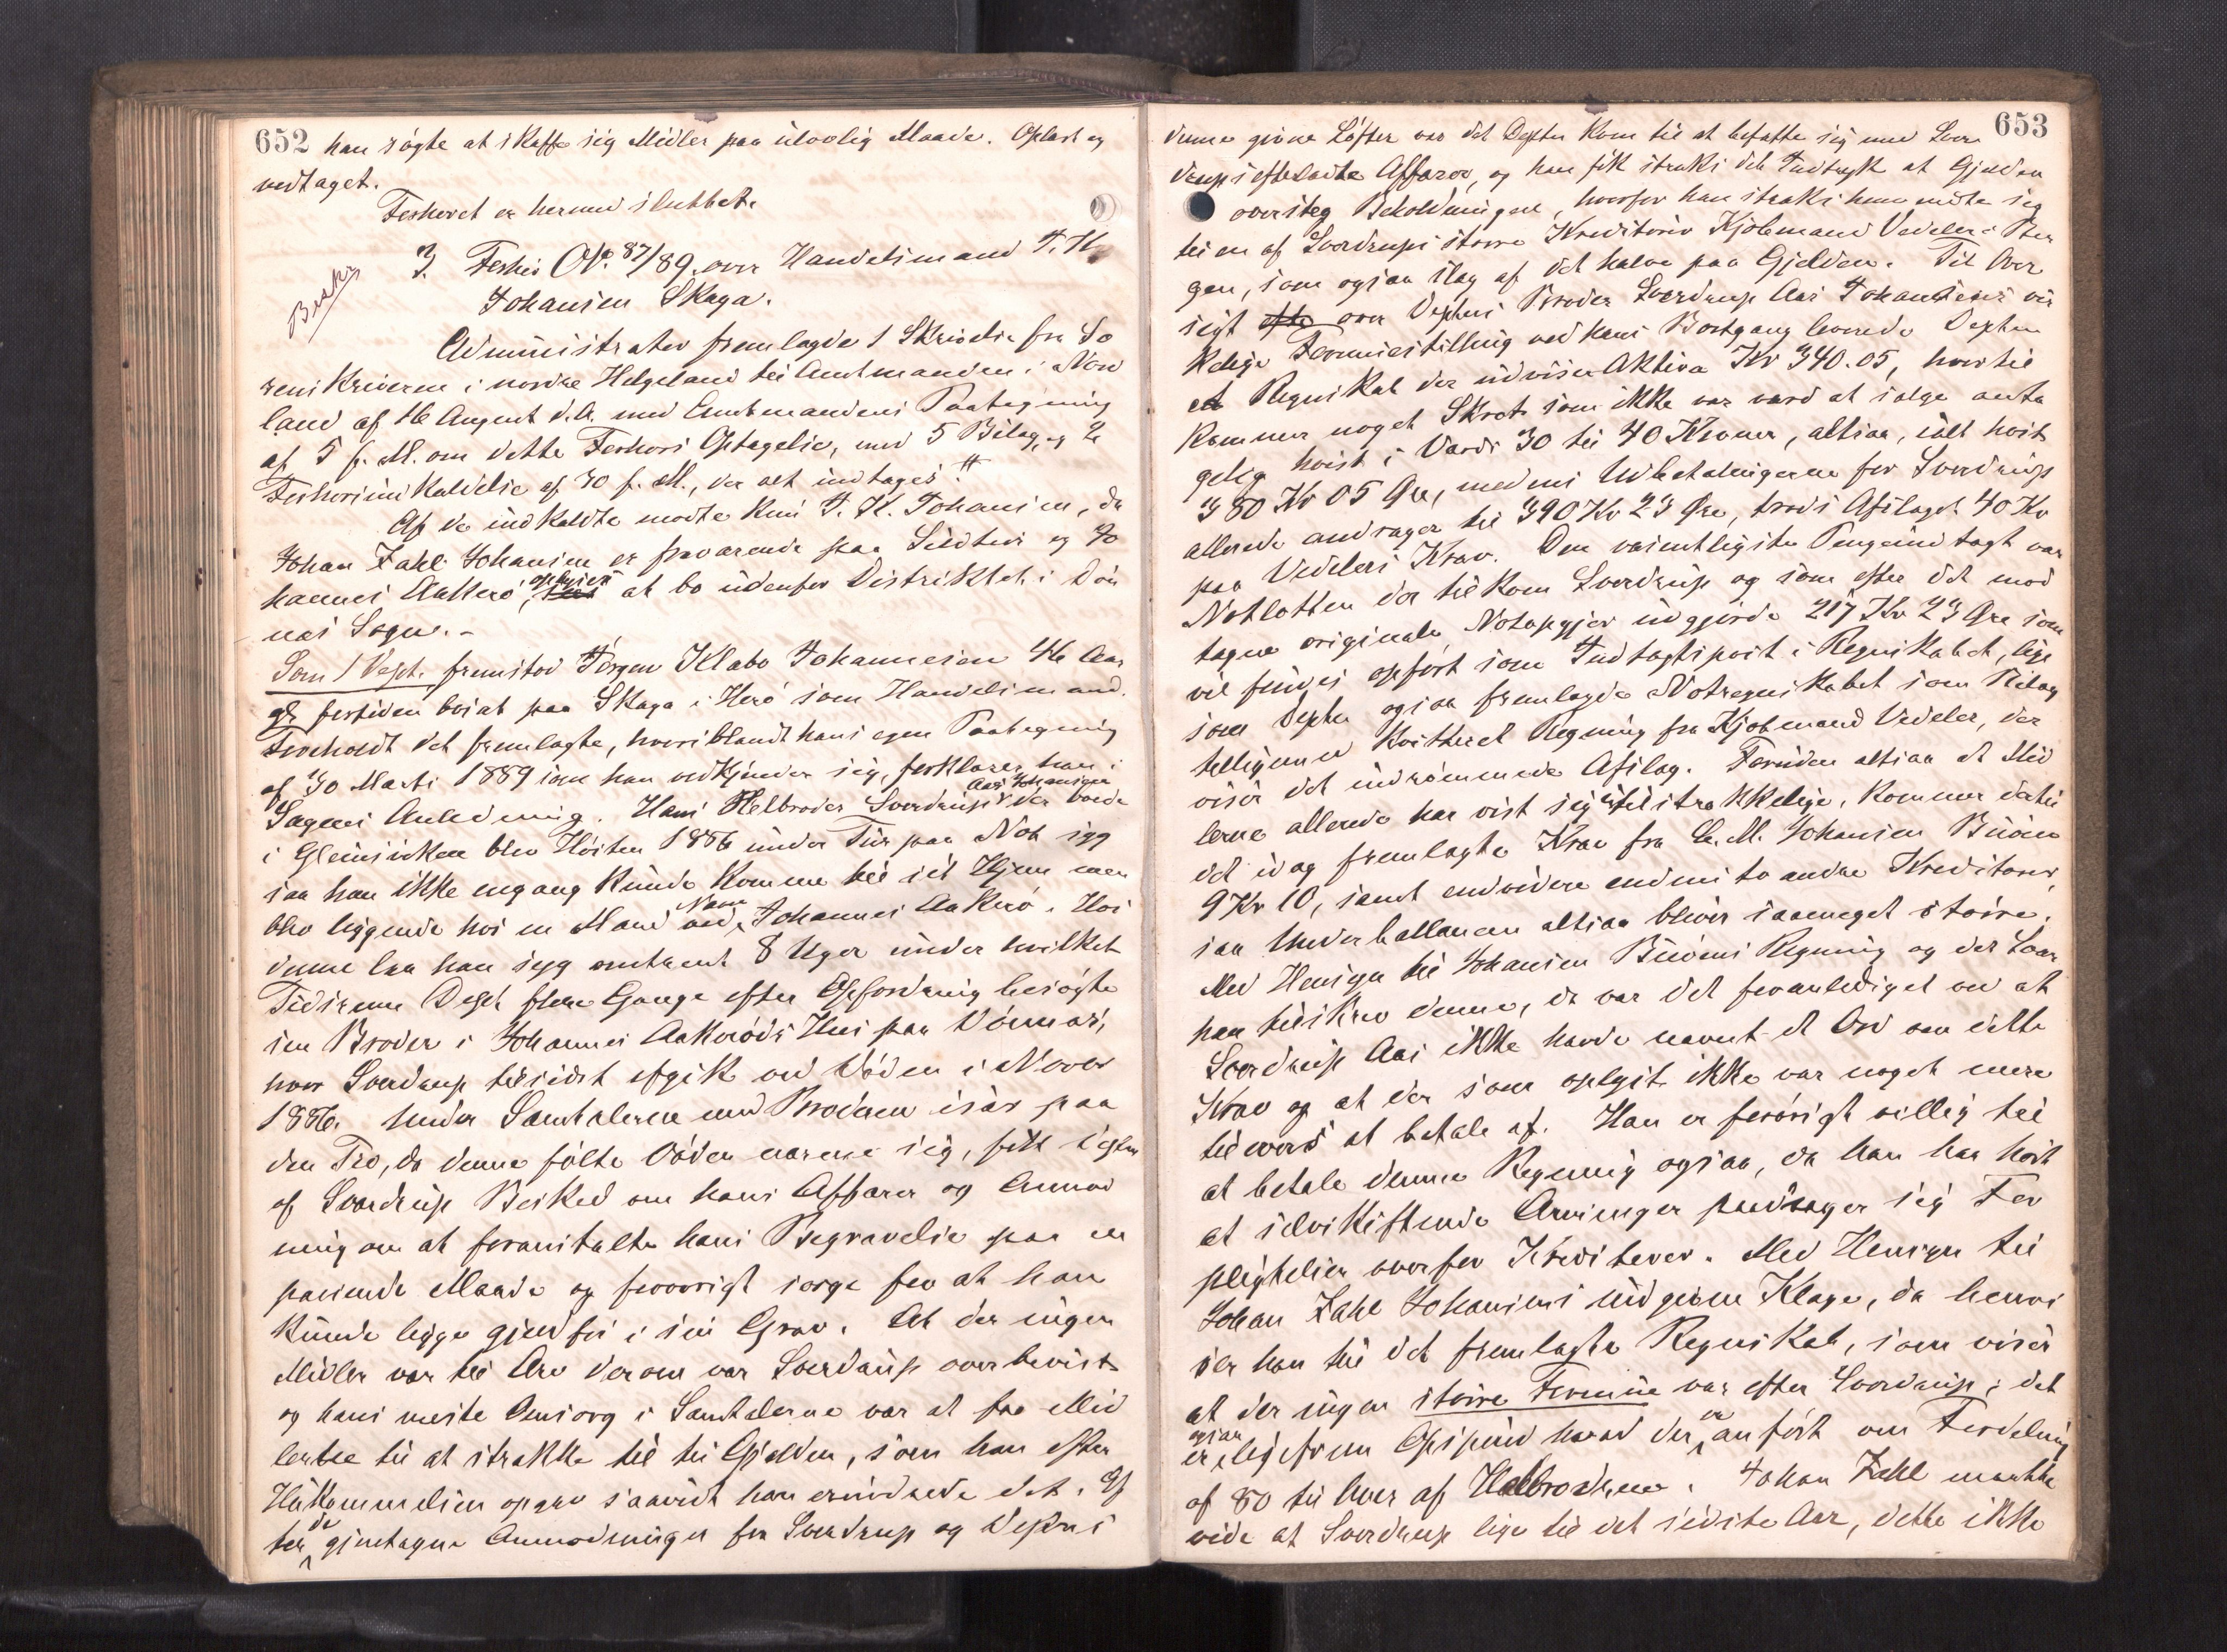 652 han søgte at skaffe sig Midler paa ulovlig Maade. Oplæst og
vedtaget.
Forhøret er hermed sluttet.
Beskr
3. Forhør No. 87/89 over Handelsmand J. K.
Johansen Skaga.
Administrator fremlagde 1 Skrivelse fra So
renskriveren i nordre Helgeland til Amtmanden i Nord
land af 16 August d.A. med Amtmandens Paategning
af 5 f. M. om dette Forhørs Optagelse, med 5 Bilag, og 2
Forhørsindkaldelse af 30 f. M., der alt indtages #
Af de indkaldte mødte kun J. K. Johansen, da
Johan Zahl Johansen er fraværende paa Sildefiske og Jo
hannes Aakerø oplyses at bo udenfor Distriktet i Døn
næs Sogn. -
Som 1 Dept. fremstod Jørgen Klabo Johannesen 46 Aar
gl fortiden bosat paa Skaga i Herø som Handelsmand.
Foreholdt det fremlagte, hvoriblandt hans egen Paategning
af 30 Marts 1889 som han vedkjender sig, forklarer han i
Sagens Anledning. Hans Helbroder Sverdrup Aas Johansen der boede
i Gleinsviken blev Høsten 1886 under Tur paa Not syg
saa han ikke engang kunde komme til sit Hjem men
blev liggende hos en Mand ved Navn Johannes Aakerø. Hos
denne laa han syg omtrent 8 Uger under hvilket
Tidsrum Dept flere Gange efter Opfordring besøgte
sin Broder i Johannes Aakerøds Hus paa Dønnæs,
hvor Sverdrup tilsidst afgik ved Døden i Novbr
1886. Under Samtalerne med Broderen især paa
den Tid, da denne følte Døden nærme sig, fik Depten
af Sverdrup Besked om hans Affærer og Anmod
ning om at foranstalte hans Begravelse paa en
passende Maade og forøvrigt sørge for at han
kunde ligge gjeldfri i sin Grav. At der ingen
Midler var til Arv derom var Sverdrup overbevist
og hans meste Omsorg i Samtalerne var at faa Mid
lerne til at strække til til Gjælden, som han efter
Hukommelsen opgav saavidt han erindrede det. Ef
ter de gjentagne Anmodninger fra Sverdrup og Deptns
653
denne givne Løfter var det Depten kom til at befatte sig med Sver
drups efterladte Affærer, og han fik straks det Indtryk at Gjælden
oversteg Beholdningen, hvorfor han straks henvendte sig
til en af Sverdrups større Kreditorer Kjøbmand Vedeler i Ber
gen, som ogsaa slog af det halve paa Gjelden. Til Over
sigt over Deptns Broder Sverdrup Aas Johansens vir
kelige Formuestilling ved hans Bortgang leverede Depten
et Regnskab der udviser Aktiva Kr 340.05, hvortil
kommer noget Skrot som ikke var værd at sælge anta
gelig høist i Værdi 30 til 40 Kroner, altsaa, ialt høist
380 Kr 05 Øre, medens Udbetalingerne for Sverdrup
allerede andrager til 390 Kr 23 Øre, trods Afslaget 40 Kr
paa Vedelers Krav. Den væsentligste Pengeindtægt var
Notlotten der tilkom Sverdrup og som efter det mod
tagne originale Notopgjør udgjorde 217 Kr 23 Øre som
vil findes opført som Indtægtspost i Regnskabet, lige
som Depten ogsaa fremlagde Notregnskabet som Bilag
telligemed kvitteret Regning fra Kjøbmand Vedeler, der
viser det indrømmede Afslag. Foruden altsaa at Mid
lerne allerede har vist sig utilstrækkelige, kommer dertil
det idag fremlagte Krav fra L. M. Johansen Buøen
9 Kr 10, samt endvidere endnu to andre Kreditorer,
saa Underballancen altsaa bliver saameget større.
Med Hensyn til Johansen Buøens Regning og det Svar
han tilskrev denne, da var det foranlediget ved at
Sverdrup Aas ikke havde nævnt et Ord om dette
Krav og at der som oplyst ikke var noget mere
tilovers at betale af. Han er forøvrigt villig til
at betale denne Regning ogsaa, da han har hørt
at selvskiftende Arvinger paadrager sig For
pligtelser overfor Kreditorer. Med Hensyn til
Johan Zahl Johansens Udgivne Klage, da henvi
ser han til det fremlagte Regnskab, som viser
at der ingen større Formue var efter Sverdrup; det
er ogsaa ligefrem Opspind hvad der er anført om Fordeling
af 80 til hver af Halbrødrene. Johan Zahl maatte
vide at Sverdrup lige til det sidste Aar, dette ikke